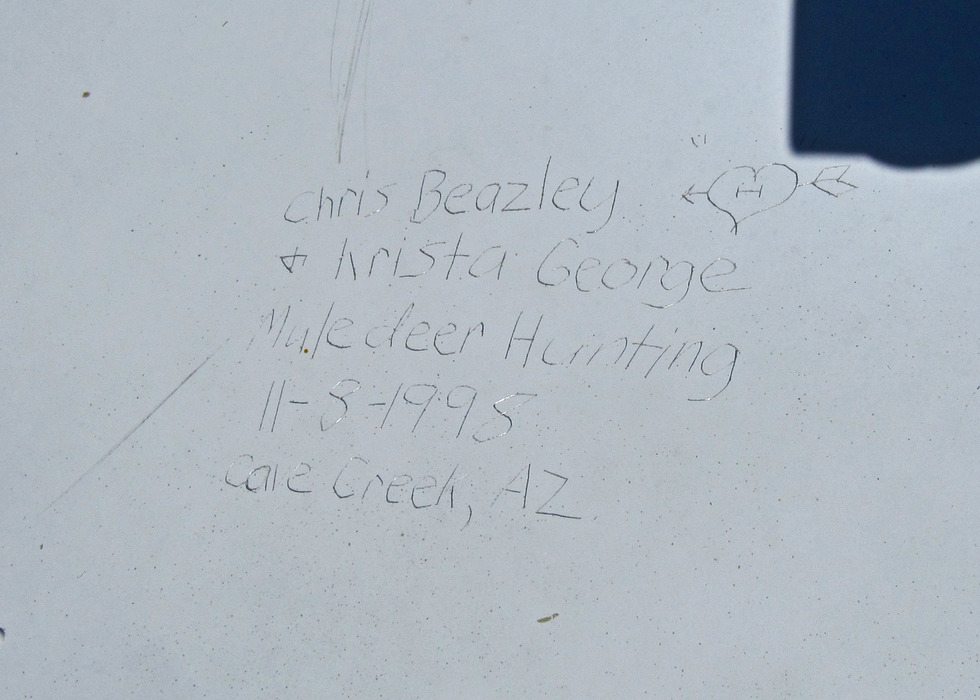 Chris Beazley
+ Krista George
Muledeer Hunting
11-8-1998
Cave Creek, AZ